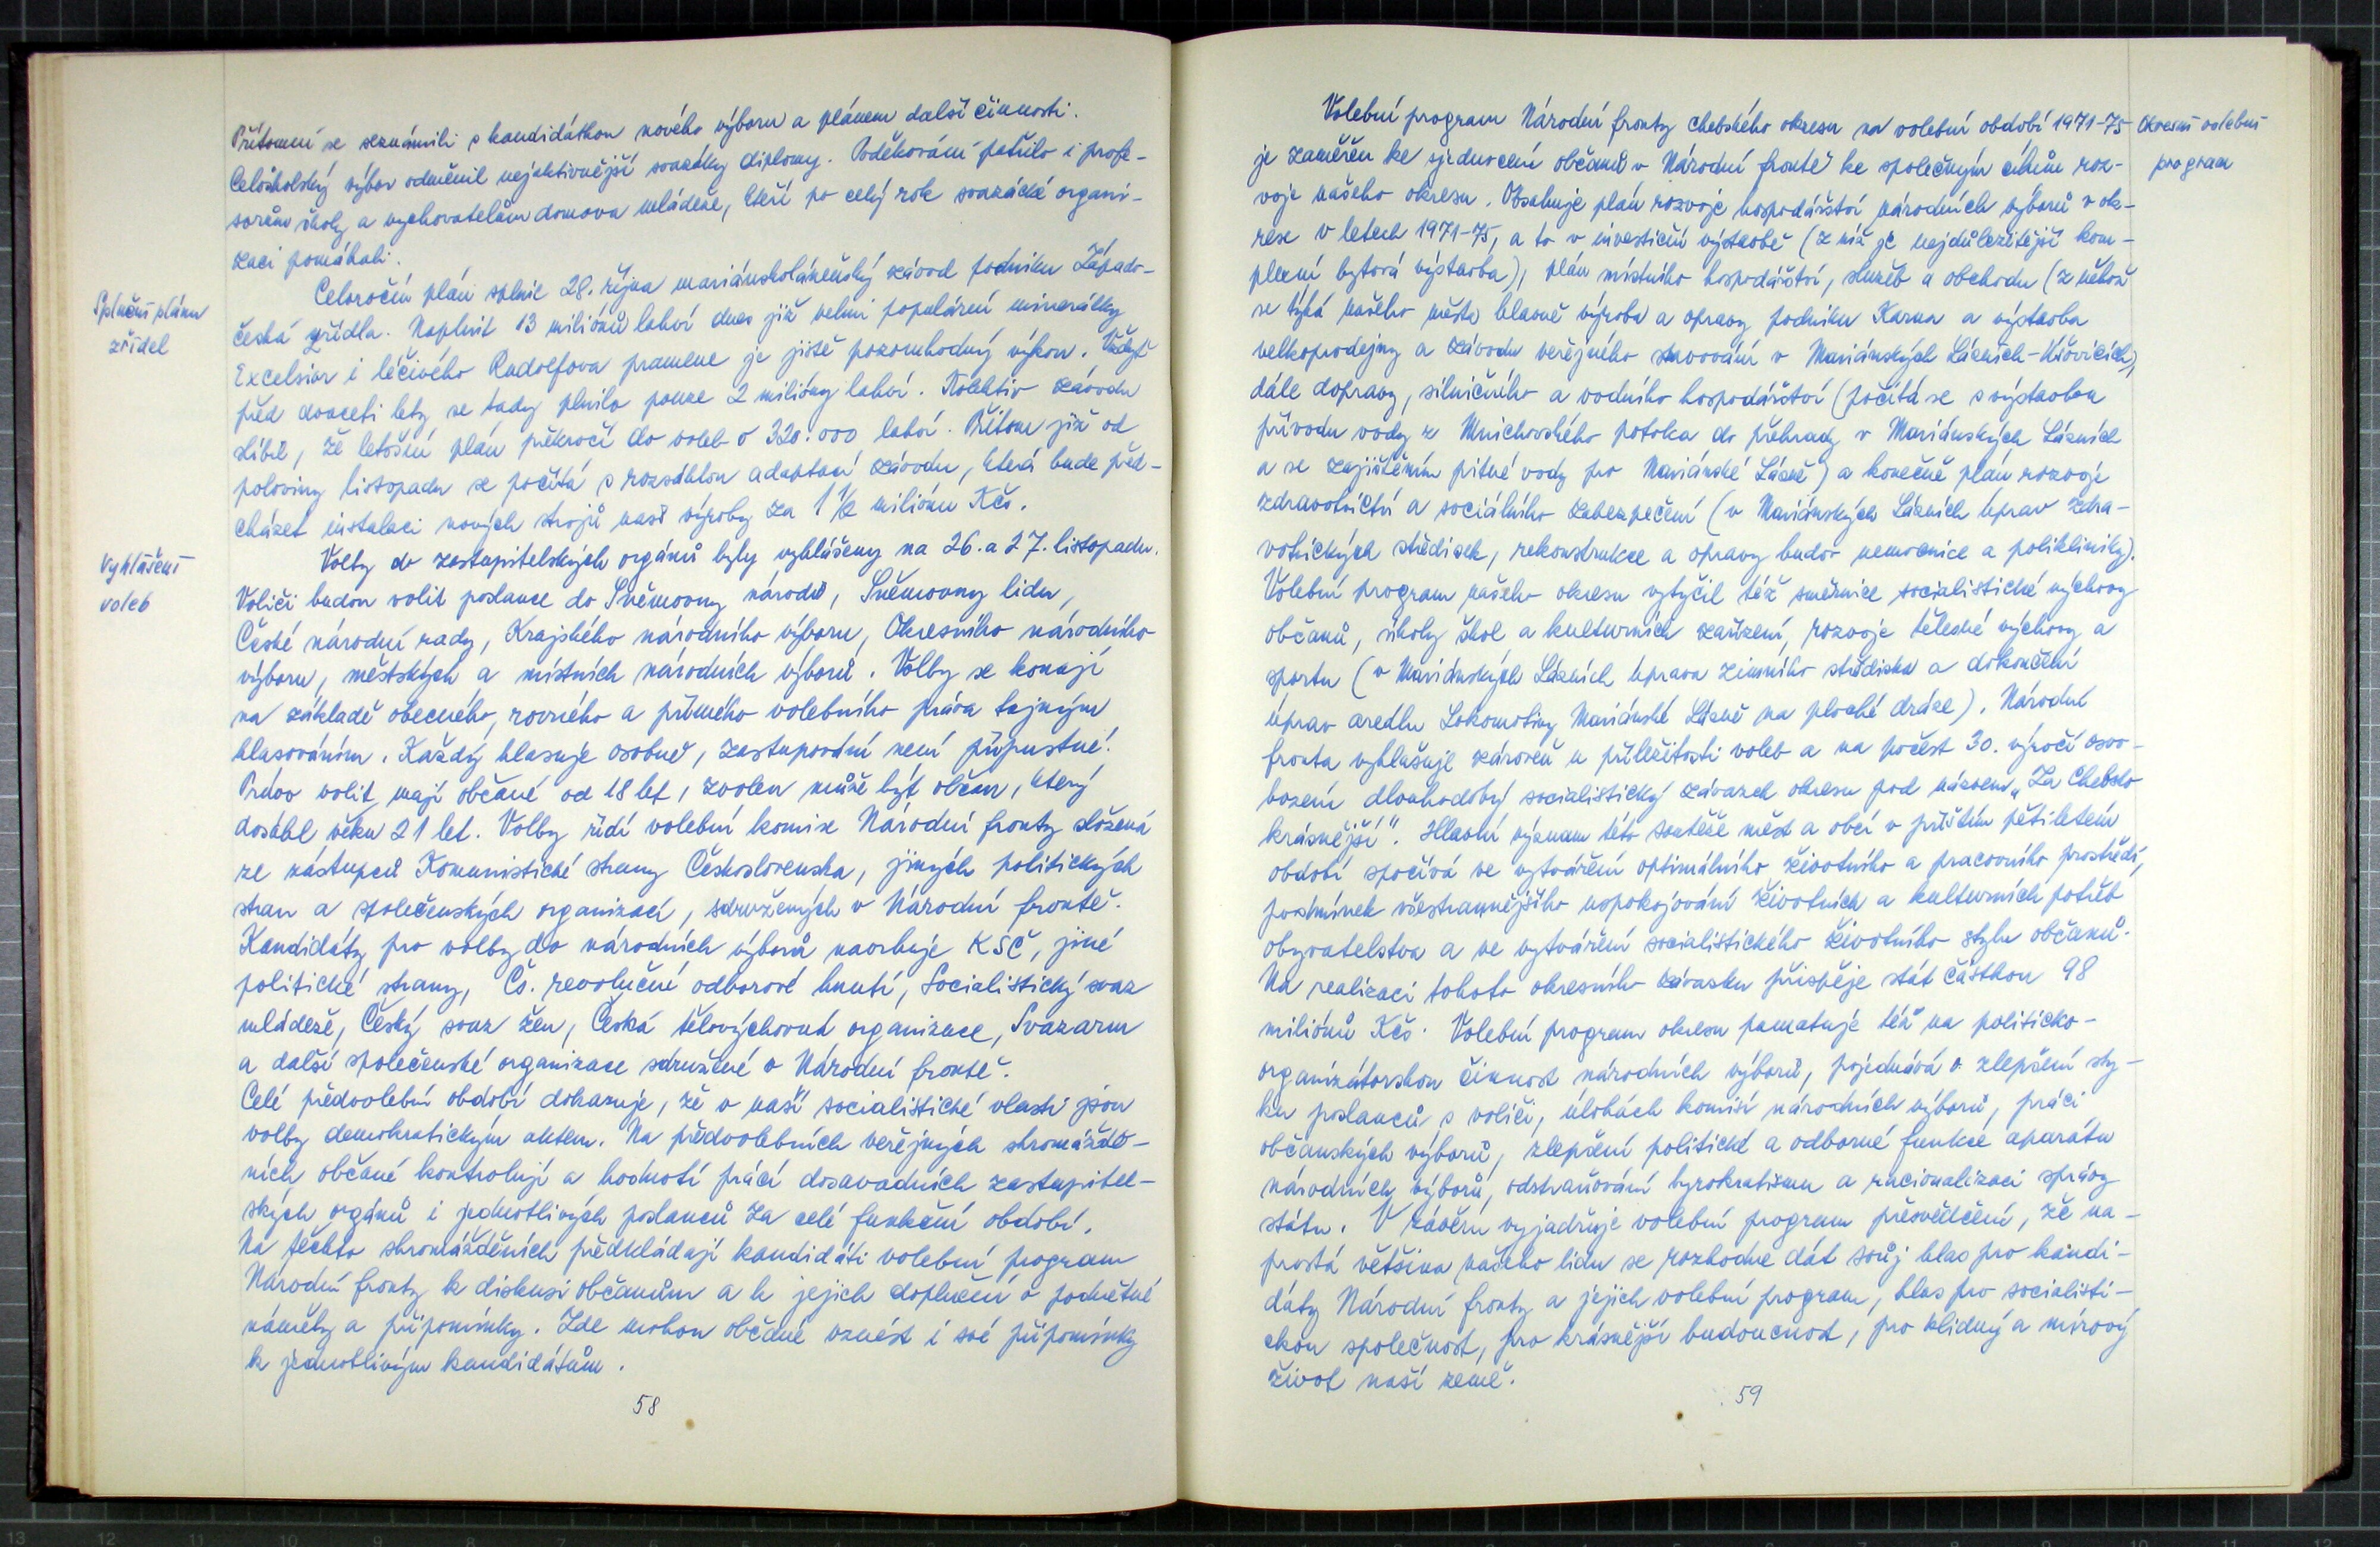 Přítomní se seznámili s kandidátkou nového výboru a plánem další činnosti.
Celoškolský výbor odměnil nejaktivnější svazáky diplomy. Poděkování patřilo i profe-
sorům školy a vychovatelům domova mládeže, kteří po celý rok svazácké organi-
zaci pomáhali.
Splnění plánu
zřídel
Celoroční plán splnil 28. října mariánskolázeňský závod podniku Západo-
česká zřídla. Naplnit 13 miliónů lahví dnes již velmi populární minerálky
Excelsior i léčivého Rudolfova pramene je jistě pozoruhodný výkon. Vždyť
před dvaceti lety se tady plnilo pouze 2 milióny lahví. Kolektiv závodu
slíbil, že letošní plán překročí do voleb o 320.000 lahví. Přitom již od
poloviny listopadu se počítá s rozsáhlou adaptací závodu, která bude před-
cházet instalaci nových strojů naší výroby za 1 1/2 miliónu Kčs.
Vyhlášení
voleb
Volby do zastupitelských orgánů byly vyhlášeny na 26. a 27. listopadu.
Voliči budou volit poslance do Sněmovny národů, Sněmovny lidu,
České národní rady, Krajského národního výboru, Okresního národního
výboru, městských a místních národních výborů. Volby se konají
na základě obecného, rovného a přímého volebního práva tajným
hlasováním. Každý hlasuje osobně, zastupování není přípustné.
Právo volit mají občané od 18 let, zvolen může být občan, který
dosáhl věku 21 let. Volby řídí volební komise Národní fronty složená
ze zástupců Komunistické strany Československa, jiných politických
stran a společenských organizací, sdružených v Národní frontě.
Kandidáty pro volby do národních výborů navrhuje KSČ, jiné
politické strany, Čs. revoluční odborové hnutí, Socialistický svaz
mládeže, Český svaz žen, Česká tělovýchovná organizace, Svazarm
a další společenské organizace sdružené v Národní frontě.
Celé předvolební období dokazuje, že v naší socialistické vlasti jsou
volby demokratickým aktem. Na předvolebních veřejných shromáždě-
ních občané kontrolují a hodnotí práci dosavadních zastupitel-
ských orgánů i jednotlivých poslanců za celé funkční období.
Na těchto shromážděních předkládají kandidáti volební program
Národní fronty k diskusi občanům a k jejich doplnění o podnětné
náměty a připomínky. Zde mohou občané vznést i své připomínky
k jednotlivým kandidátům.
58
Okresní volební
program
Volební program Národní fronty chebského okresu na volební období 1971-75
je zaměřen ke sjednocení občanů v Národní frontě ke společným cílům roz-
voje našeho okresu. Obsahuje plán rozvoje hospodářství národních výborů v ok-
rese v letech 1971-75, a to v investiční výstavbě (z níž je nejdůležitější kom-
plexní bytová výstavba), plán místního hospodářství, služeb a obchodu (z něhož
se týká našeho města hlavně výroba a opravy podniku Karna a výstavba
velkoprodejny a závodu veřejného stravování v Mariánských Lázních-Úšovicích),
dále dopravy, silničního a vodního hospodářství (počítá se s výstavbou
přívodu vody z Mnichovského potoka do přehrady v Mariánských Lázních
a se zajištěním pitné vody pro Mariánské Lázně) a konečně plán rozvoje
zdravotnictví a sociálního zabezpečení (v Mariánských Lázních úprav zdra-
votnických středisek, rekonstrukce a opravy budov nemocnice a polikliniky).
Volební program našeho okresu vytyčil též směrnice socialistické výchovy
občanů, úkoly škol a kulturních zařízení, rozvoje tělesné výchovy a
sportu (v Mariánských Lázních úprava zimního střediska a dokončení
úprav areálu Lokomotivy Mariánské Lázně na ploché dráze). Národní
fronta vyhlašuje zároveň u příležitosti voleb a na počest 30. výročí osvo-
bození dlouhodobý socialistický závazek okresu pod názvem „Za Chebsko
krásnější". Hlavní význam této soutěže měst a obcí v příštím pětiletém
období spočívá ve vytváření optimálního životního a pracovního prostředí,
podmínek všestrannějšího uspokojování životních a kulturních potřeb
obyvatelstva a ve vytváření socialistického životního stylu občanů.
Na realizaci tohoto okresního závazku přispěje stát částkou 98
miliónů Kčs. Volební program okresu pamatuje též na politicko-
organizátorskou činnost národních výborů, pojednává o zlepšení sty-
ku poslanců s voliči, úlohách komisí národních výborů, práci
občanských výborů, zlepšení politické a odborné funkce aparátu
národních výborů, odstraňování byrokratismu a racionalizaci správy
státu. V závěru vyjadřuje volební program přesvědčení, že na-
prostá většina našeho lidu se rozhodne dát svůj hlas pro kandi-
dáty Národní fronty a jejich volební program, hlas pro socialisti-
ckou společnost, pro krásnější budoucnost, pro klidný a mírový
život naší země.
59